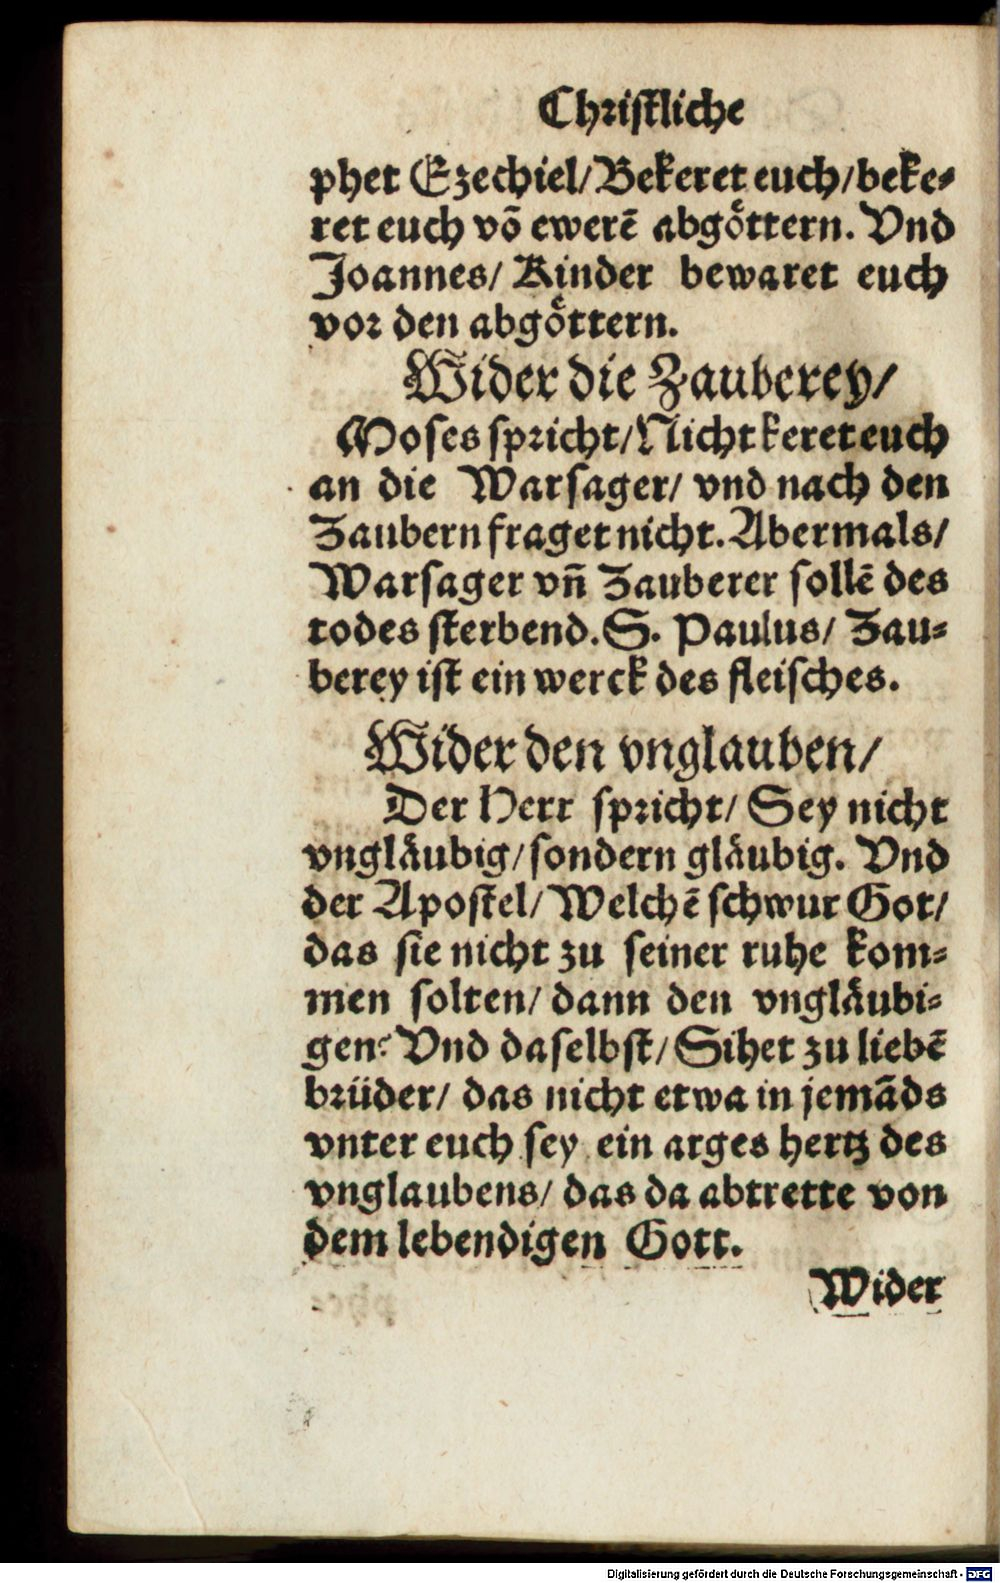 Christliche
phet Ezechiel/ Bekeret euch/ beke⸗
ret euch võ ewerẽ abgoͤttern. Vnd
Joannes/ Kinder bewaret euch
vor den abgoͤttern.
Wider die Zauberey/
Moses spricht/ Nicht keret euch
an die Warsager/ vnd nach den
Zaubern fraget nicht. Abermals/
Warsager vñ Zauberer sollẽ des
todes sterbend. S. Paulus/ Zau⸗
berey ist ein werck des fleisches.
Wider den vnglauben/
Der Herr spricht/ Sey nicht
vnglaͤubig/ sondern glaͤubig. Vnd
der Apostel/ Welchẽ schwur Got/
das sie nicht zu seiner ruhe kom⸗
men solten/ dann den vnglaͤubi⸗
gen? Vnd daselbst/ Sihet zu liebẽ
brüder/ das nicht etwa in jemãds
vnter euch sey ein arges hertz des
vnglaubens/ das da abtrette von
dem lebendigen Gott.
Wider
Digitalisierung gefördert durch die Deutsche Forschungsgemeinschaft - DFG